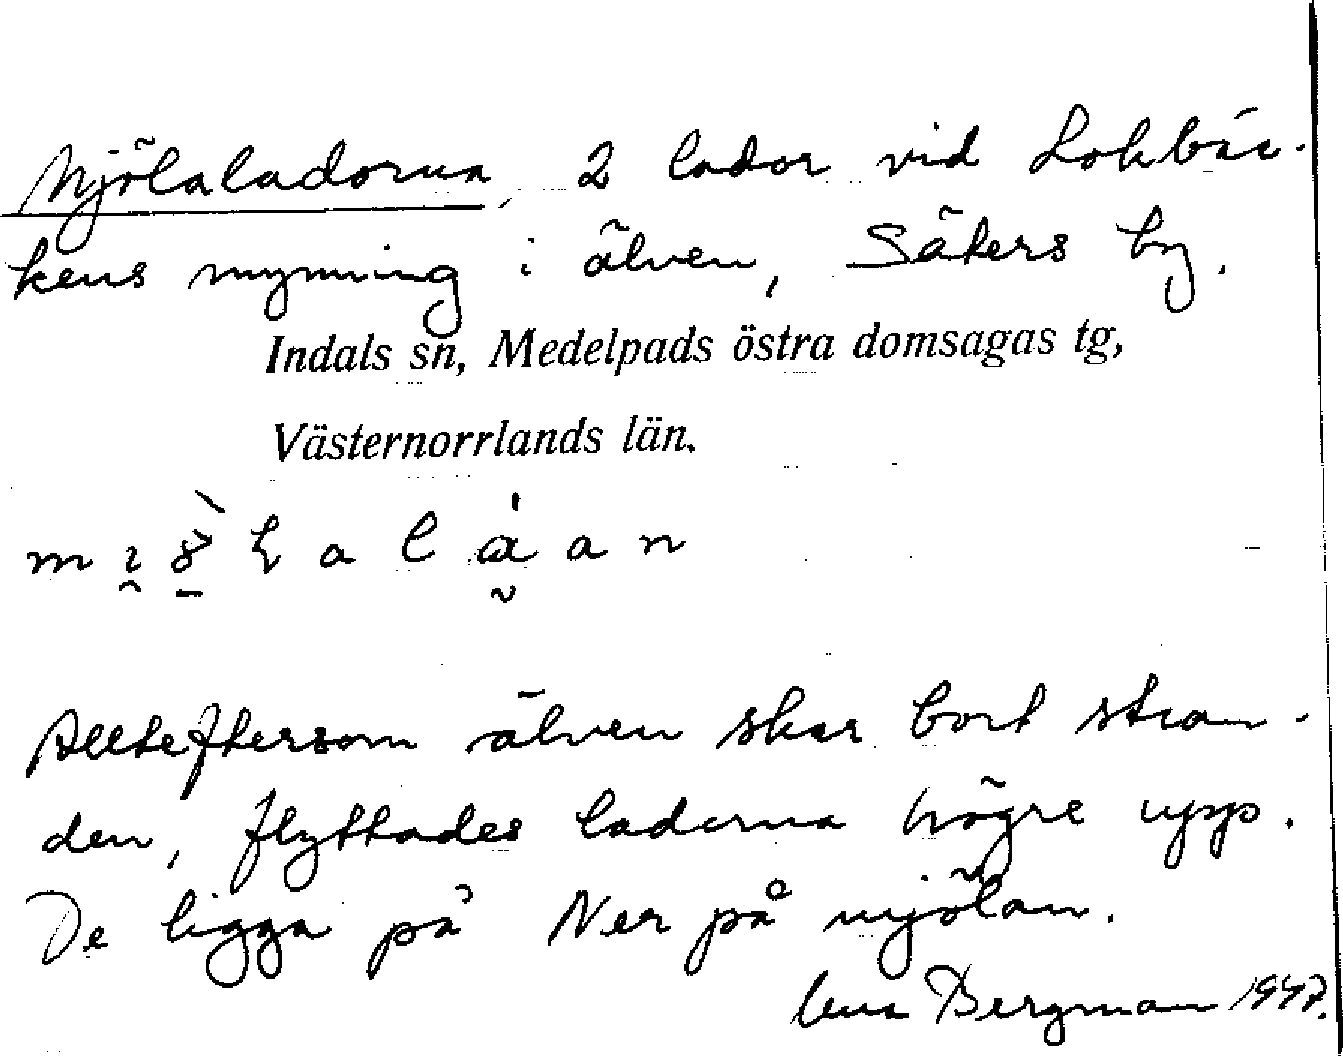 Mjölaladorna, 2 lador vid Lokbäc-
kens mynning i älven, Säters by.
Indals sn, Medelpads östra domsagas tg,
Västernorrlands län.
Allteftersom älven skar bort stran-
den, flyttades ladorna högre upp.
De ligga på Ner på mjölan.
Bergman 1947.